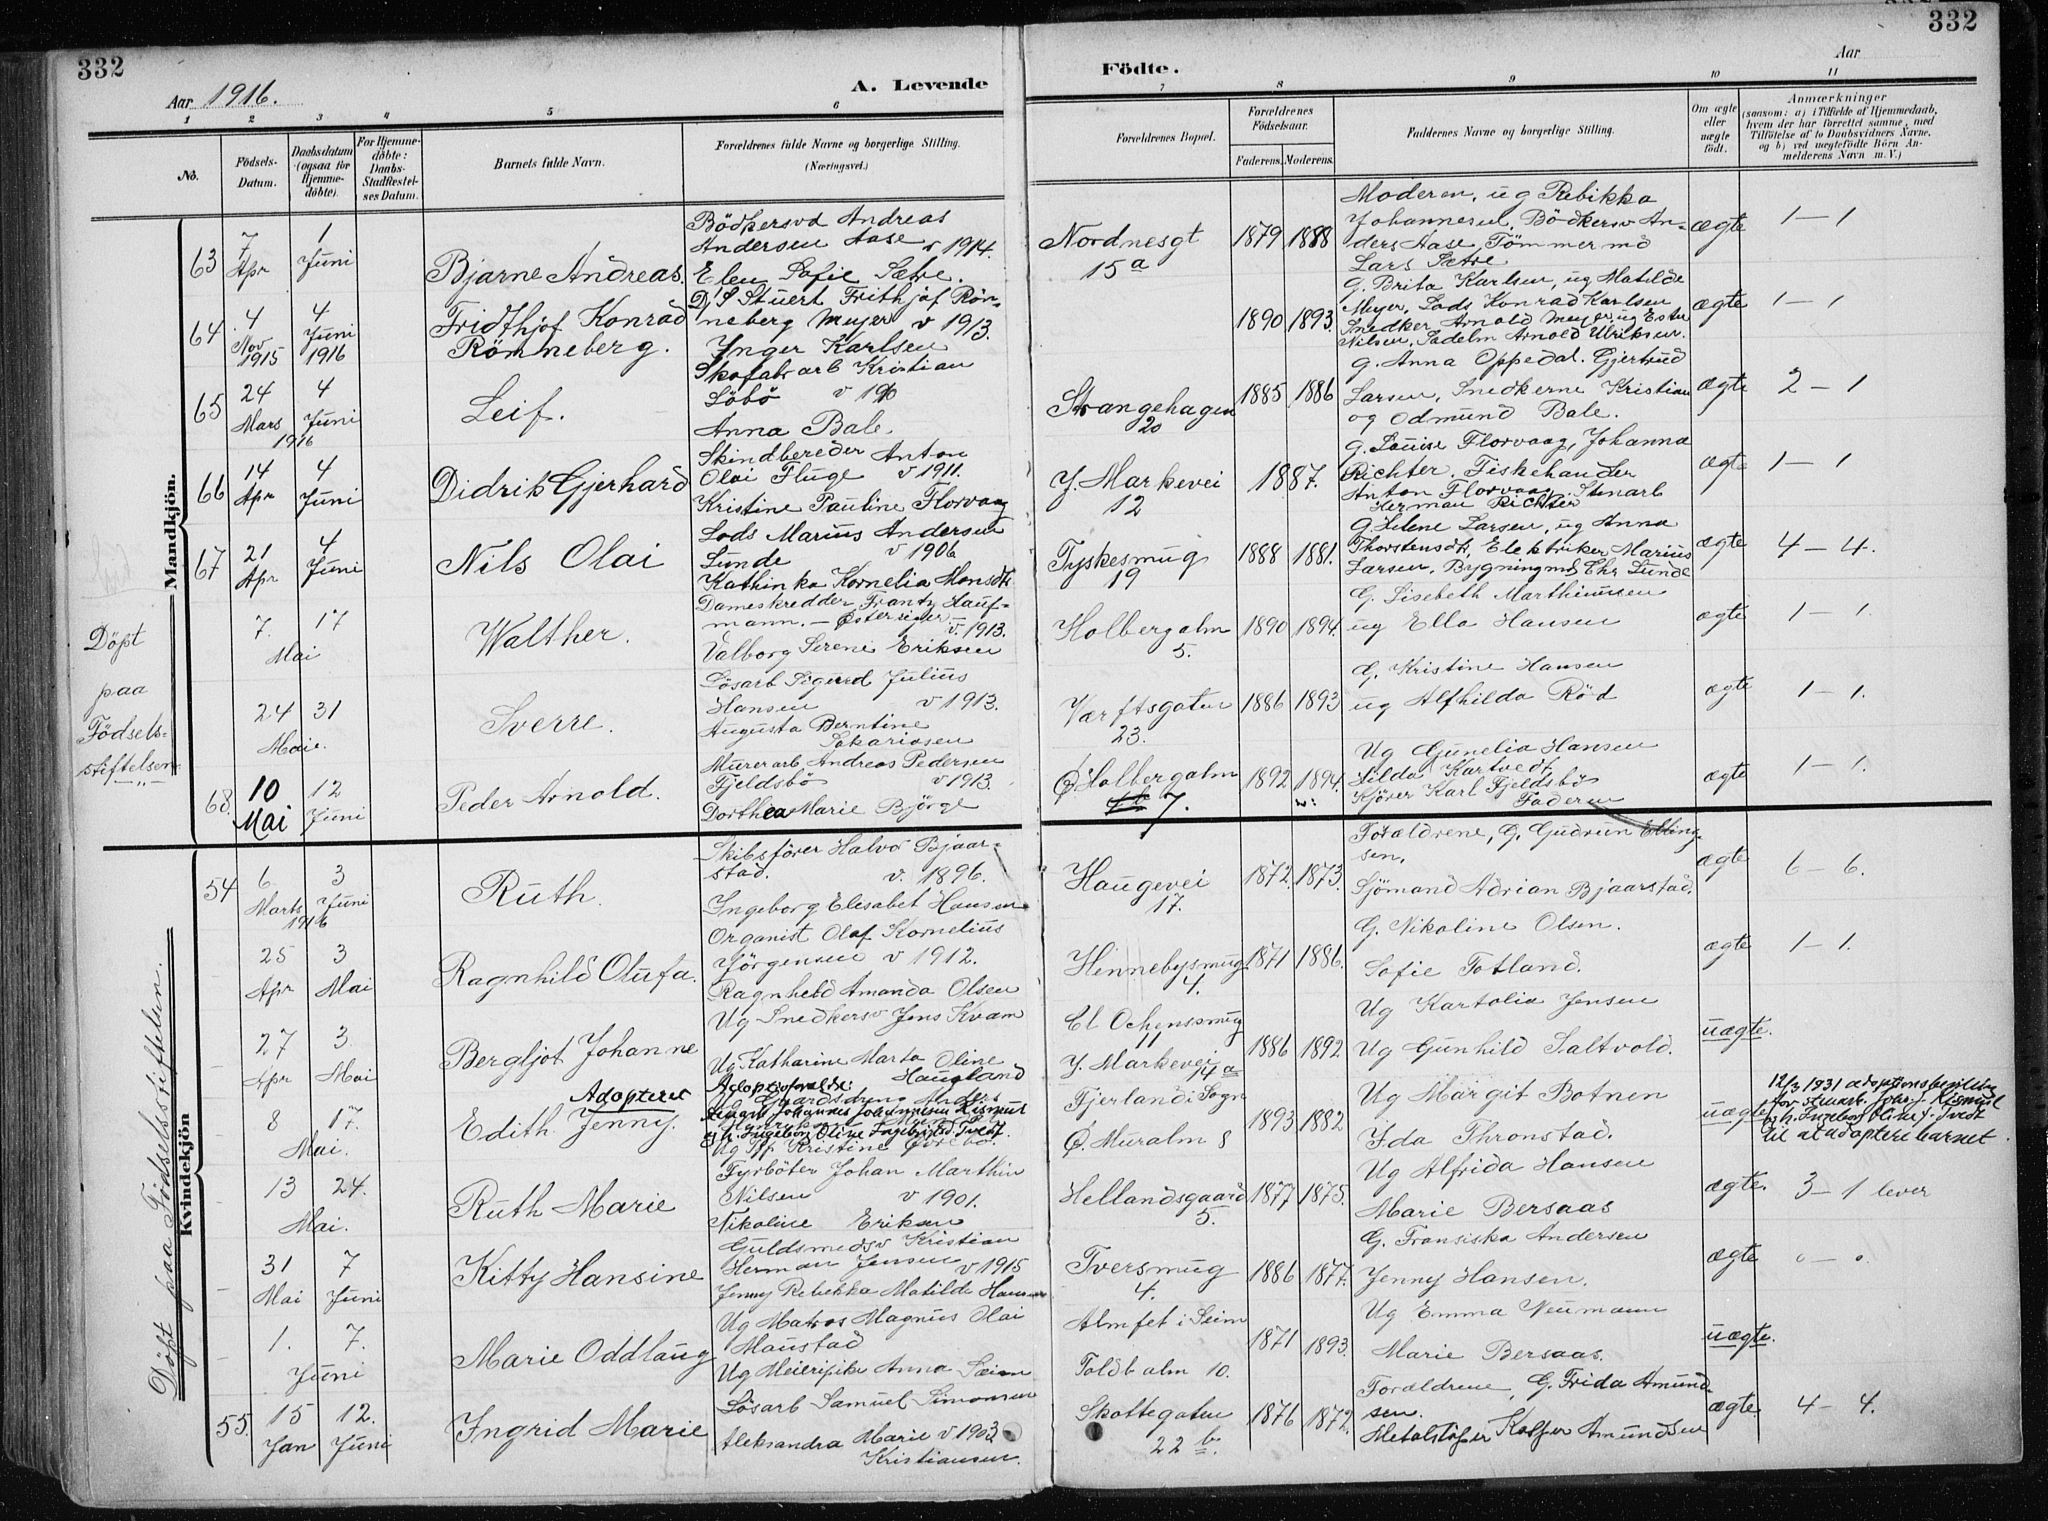 332
332
Aar 1916.
A. Levende
Födte.
Aar
1 2 3 4 5 6 7 8 9 10 11
No.
Födsels-Datum.
Daabsdatum (ogsaa for Hjemme-döbte).
For Hjemme-döbte: Daabs-Stadfæstel-ses Datum.
Barnets fulde Navn.
Forældrenes fulde Navne og borgerlige Stilling. (Næringsvei.)
Forældrenes Bopæl.
Forældrenes Födselsaar.
Faderens. Moderens.
Faddernes Navne og borgerlige Stilling.
Om ægte eller uægte födt.
Anmærkninger
(saasom: a) i Tilfælde af Hjemmedaab, hvem der har forrettet samme, med Tilföielse af to Daabsvidners Navne, og b) ved uægtefödte Börn Anmelderens Navn m. V.)
Mandkjön.
63
7 Apr
1 Juni
Bjarne Andreas.
Bödkersvd Andreas
Andersen Aase v 1914.
Elen Sofie Sætre.
Nordnesgt
15a
1879 1888
Moderen, ug Rebikka
Johannesen, Bödkersv An-
ders Aase, Tömmermd
Lars Sætre
ægte
1 – 1
64
4 Nov 1915
4 Juni 1916
Fridthjof Konrad
Römneberg.
D/S Stuert Frithjof Rön-
neberg Meyer v 1913.
Ynger Karlsen
1890 1893.
G. Brita Karlsen, ug Matilde
Meyer, Lods Konrad Karlsen
Snedker Arnold Meyer, ug Ester
Nilsen, Sadelm Arnold Ulriksen.
ægte
1 – 1
65
24 Mars 1916
4 Juni
Leif.
Skofabr arb Kristian
Söbö v 1910
Anna Bale.
Strangehagen
20
1885 1886
G. Anna Oppedal. Gjertrud
Larsen, Snedkerne Kristian
og Odmund Bale.
ægte
2 – 1
66
14 Apr
4 Juni
Didrik Gjerhard
Skindbereder Anton
Olai Fluge v 1911.
Kristine Pauline Florvaag
Y. Markevei
12
1887.
G. Louise Florvaag, Johanna
Richter. Fiskehandler
Anton Florvaag. Stenarb
Herman Richter
ægte
1 – 1
67
21 Apr
4 Juni
Nils Olai
Lods Marius Andersen
Lunde v 1906
Kathinka Kornelia Monsdtr
Tyskesmug
19
1888 1881.
G. Helene Larsen, ug Anna
Thorstensdtr, Elektriker Marius
Larsen, Bygningsmd Chr Lunde
ægte
4 – 4.
Döpt
paa
Födsels-
stiftelsen
7. Mai
17
Walther.
Dameskredder Frantz Hauf-
mann. – Østerriger v. 1913.
Valborg Serene Eriksen
Holbergalm
5.
1890 1894.
G. Lisebeth Marthinussen
ug Ella Hansen
ægte
1 – 1.
24 Mai.
31
Sverre.
Lösarb Sigurd Julius
Hansen v 1913.
Augusta Berntine
Sakariasen
Værftsgaten
23.
1886 1893
G. Kristine Hansen
ug Alfhilda Röd
ægte
1 – 1.
68.
10 Mai
12 Juni
Peder Arnold.
Murerarb Andreas Pedersen
Fjeldsbö v 1913.
Dorthea Marie Björge
Ø Holbergalm
7.
1892 1894.
Ug Gunelia Hansen
Hilda Kartvedt
Kjörer Karl Fjeldsbö
Faderen
ægte
1 – 1.
Kvindekjön
Döpt paa Födselsstiftelsen.
54
6 Marts 1916
3 Juni
Ruth.
Skibsförer Halvo Bjaar-
stad. v. 1896.
Ingeborg Elesabet Hansen
Haugevei
17.
1872. 1873.
Forældrene, G. Gudrun Elling-
sen.
Sjömand Adrian Bjaarstad.
ægte
6 – 6.
25 Apr
3 Mai
Ragnhild Olufa.
Organist Olaf Kornelius
Jörgensen v 1912.
Ragnhild Amanda Olsen
Hinnebysmug
4.
1871 1886.
G. Nikoline Olsen.
Sofie Totland.
ægte
1 – 1.
27 Apr
3 Mai
Bergljot Johanne
Ug Snedkersv Jens Kvam
Ug. Katharine Marta Oline
Haugland
Cl Ochenssmug
11
Y. Markevei
14a
1886 1892.
Ug Kartolia Jensen
Ug Gunhild Saltvold.
uægte.
8 Mai.
17.
Adopteret
Edith Jenny.
Adoptivforældre:
Johannes Johannesen Kismul
Ug Kristine
Fjerland i Sogn
Ø. Muralm 8
1893 1882
Ug Margit Botnen
Ida Thronstad.
uægte
12/3 1931 adoptionsbevilling
for stenarb. Johs. J. Kismul
og h. Ingeborg Oline f. Tvedt
til at adoptere barnet.
13 Mai.
24.
Ruth Marie
Fyrböter Johan Marthin
Nilsen v 1901.
Nikoline Eriksen
Hellandsgaard
5.
1877 1875.
Ug Alfrida Hansen
Marie Bersaas
ægte.
3 – 1 lever
31 Mai
7 Juni
Kitty Hansine
Guldsmedsv Kristian
Herman Jensen v 1915
Jenny Rebekka Matilde Hansen
Tversmug
4.
1886 1877.
G. Fransiska Andersen
Jenny Hansen.
ægte
0 – 0.
1. Juni
7.
Marie Oddlaug
Ug Matros Magnus Olai
Maustad
Ug Meieripike Anna Seim
Almfet i Seim
Toldb alm 10.
1871 1893.
Ug Emma Neumann
Marie Bersaas.
uægte.
55.
15 Jan
12. Juni
Ingrid Marie
Lösarb Samuel Simonsen
Aleksandra Marie v 1903
Kristiansen.
Skottegaten
22 b.
1876 1872.
Forældrene, G. Frida Amund-
sen.
Metalstöper Amundsen
ægte.
4 – 4.